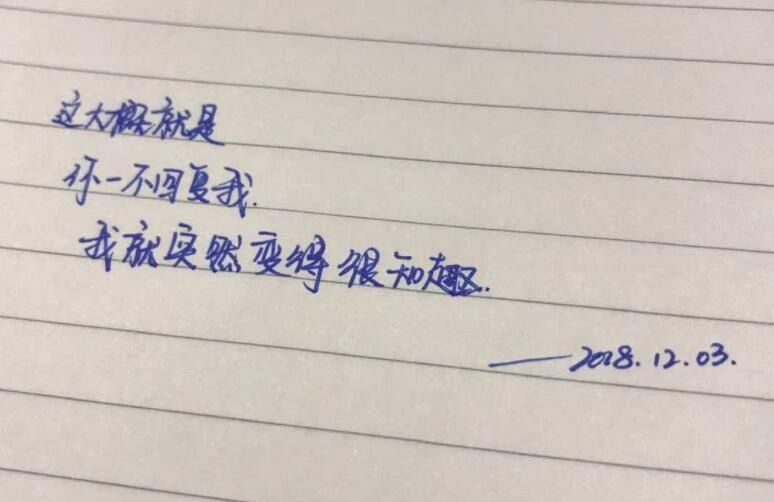 这大概就是
你一不回复我.
我就突然变得很知趣.
——2018.12.03.